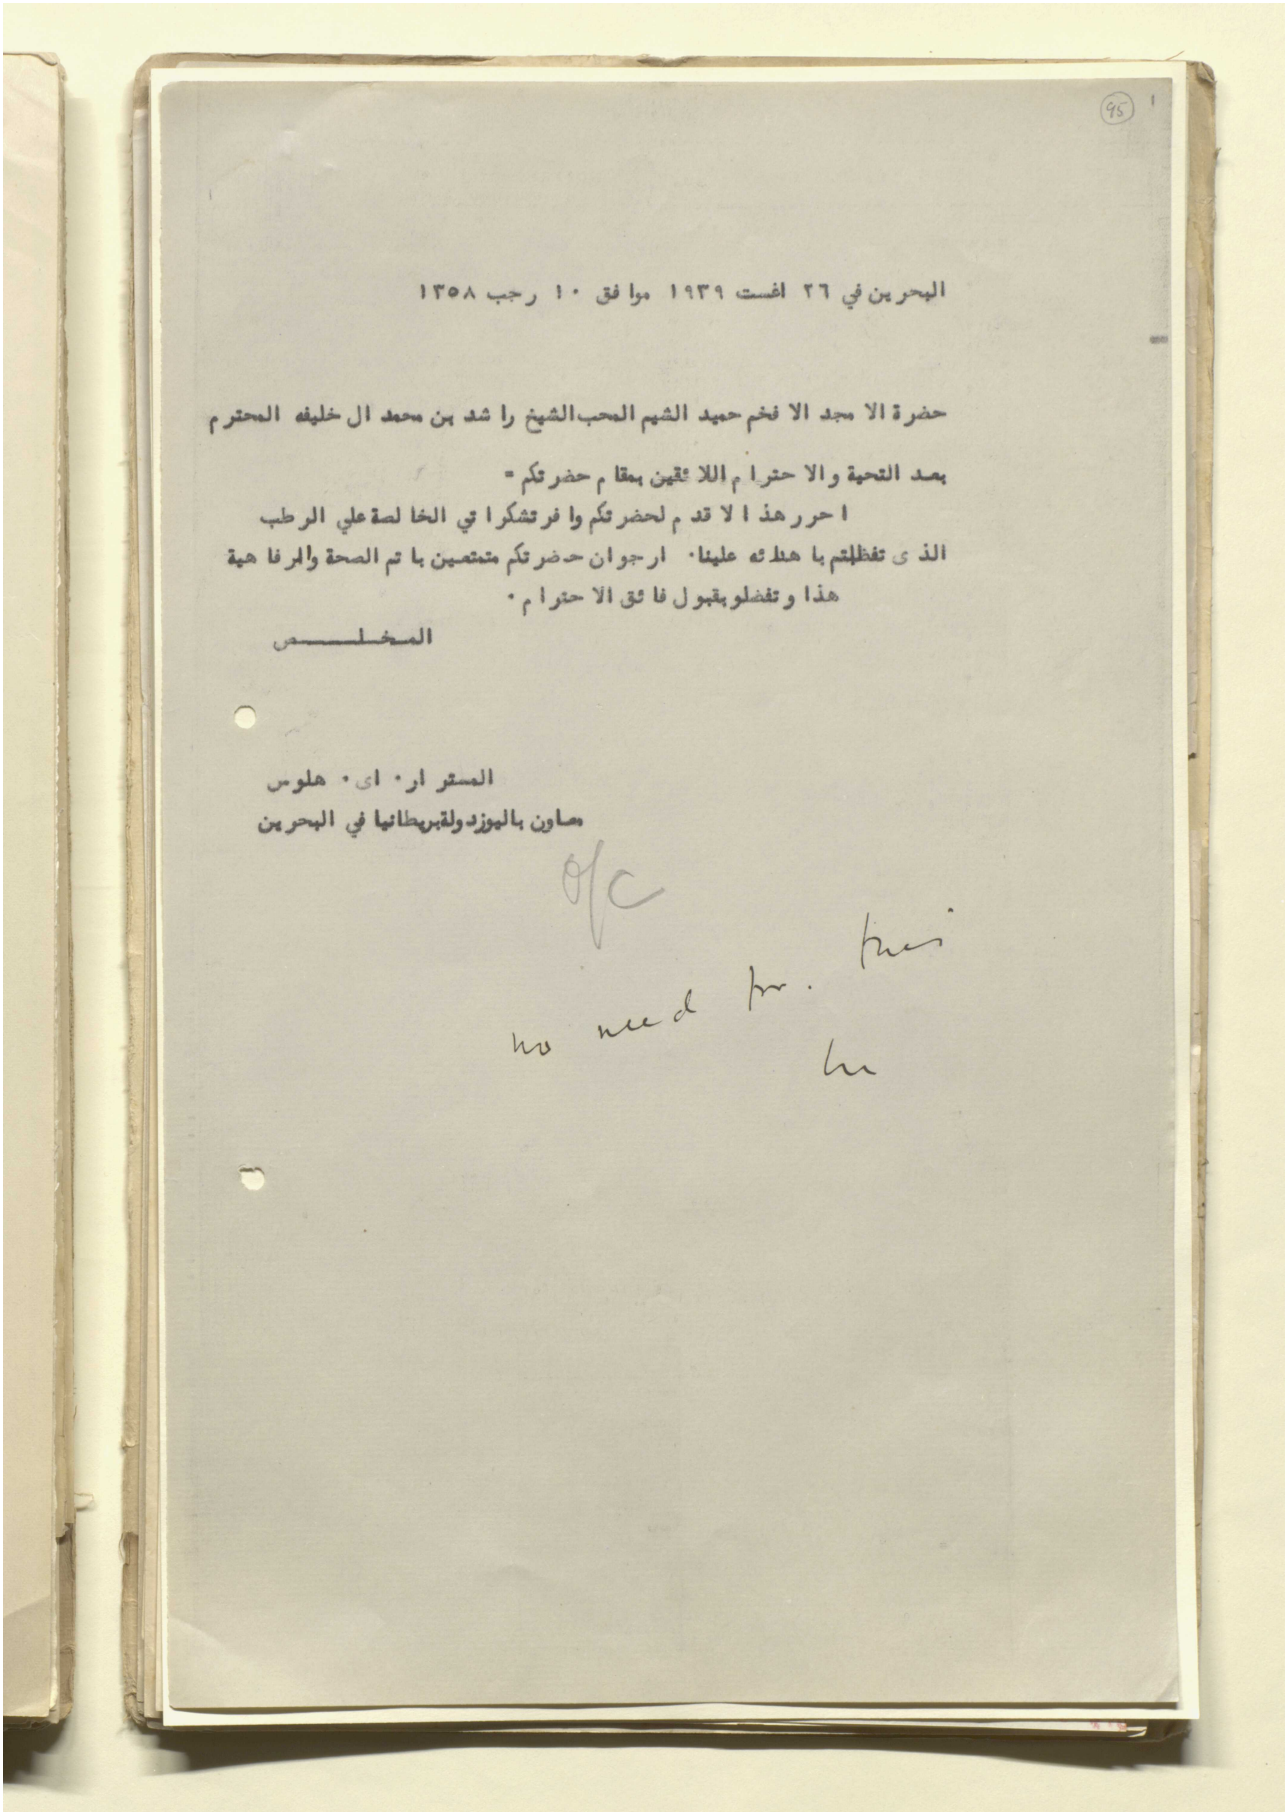 95
البحرين في ٢٦ اغست ١٩٣٩ موافق ١٠ رجب ١٣٥٨
حضرة الامجد الافخم حميد الشيم المحب الشيخ راشد بن محمد ال خليفه المحترم
بعد التحية والاحترام اللائقين بمقام حضرتكم =
احرر هذا لاقدم لحضرتكم وافر تشكراتي الخالصة علي الرطب
الذى تفظلتم باهدائه علينا٠ ارجو ان حضرتكم متمتعين باتم الصحة والرفاهية
هذا وتفضلو بقبول فائق الاحترام٠
المخلــــص
المستر ار٠ اى٠ هلوس
معاون باليوز دولة بريطانيا في البحرين
o/c
no need for. this